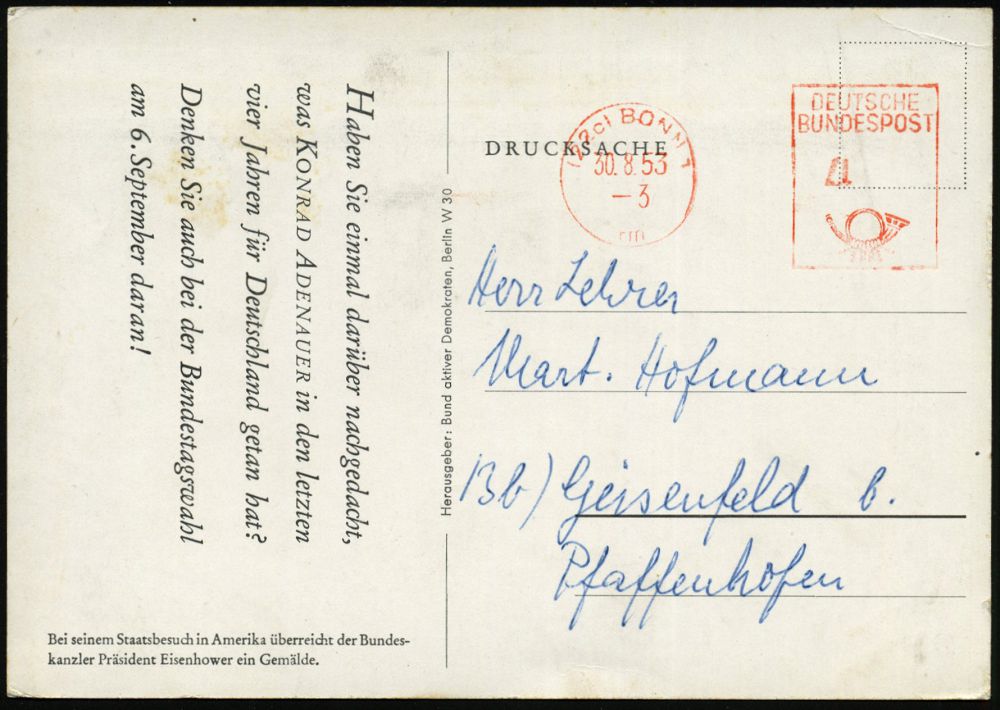 Haben Sie einmal darüber nachgedacht,
was KONRAD ADENAUER in den letzten
vier Jahren für Deutschland getan hat?
Denken Sie auch bei der Bundestagswahl
am 6. September daran!
Bei seinem Staatsbesuch in Amerika überreicht der Bundes-
kanzler Präsident Eisenhower ein Gemälde.
Herausgeber: Bund aktiver Demokraten, Berlin W 30
DRUCKSACHE
(22c) BONN 1
30.8.53
– 3
DEUTSCHE
BUNDESPOST
4
Herr Lehrer
Mart. Hofmann
13b) Geisenfeld b.
Pfaffenhofen